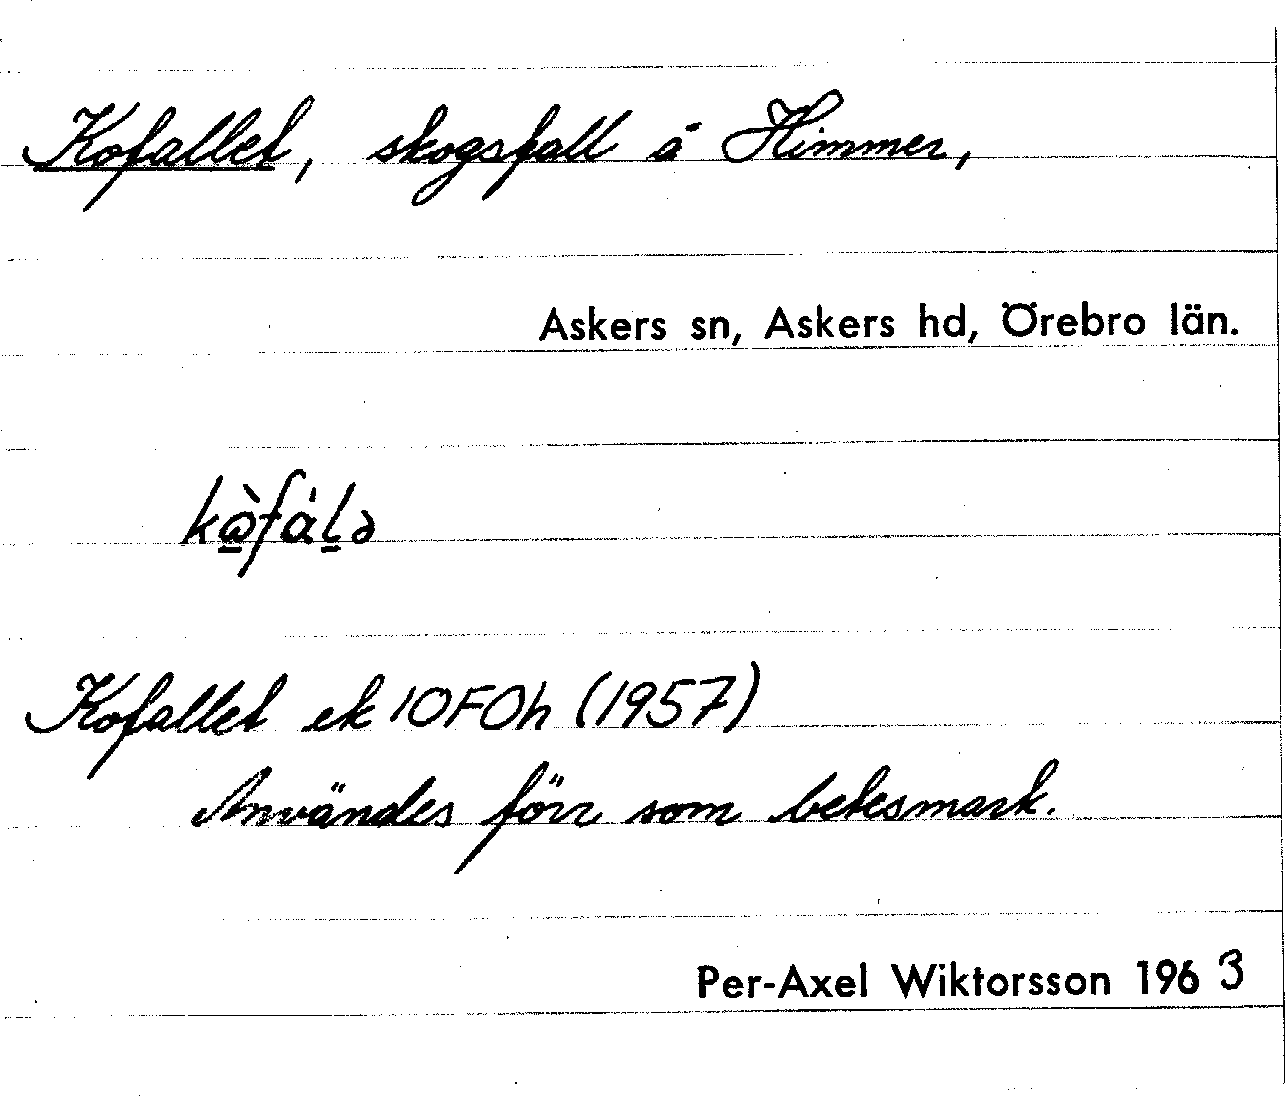 Kofallet, skogsfall å Himmer,
Askers sn, Askers hd, Örebro län.
Kofallet ek 10F0h (1957)
Användes förr som betesmark.
Per-Axel Wiktorsson 1963